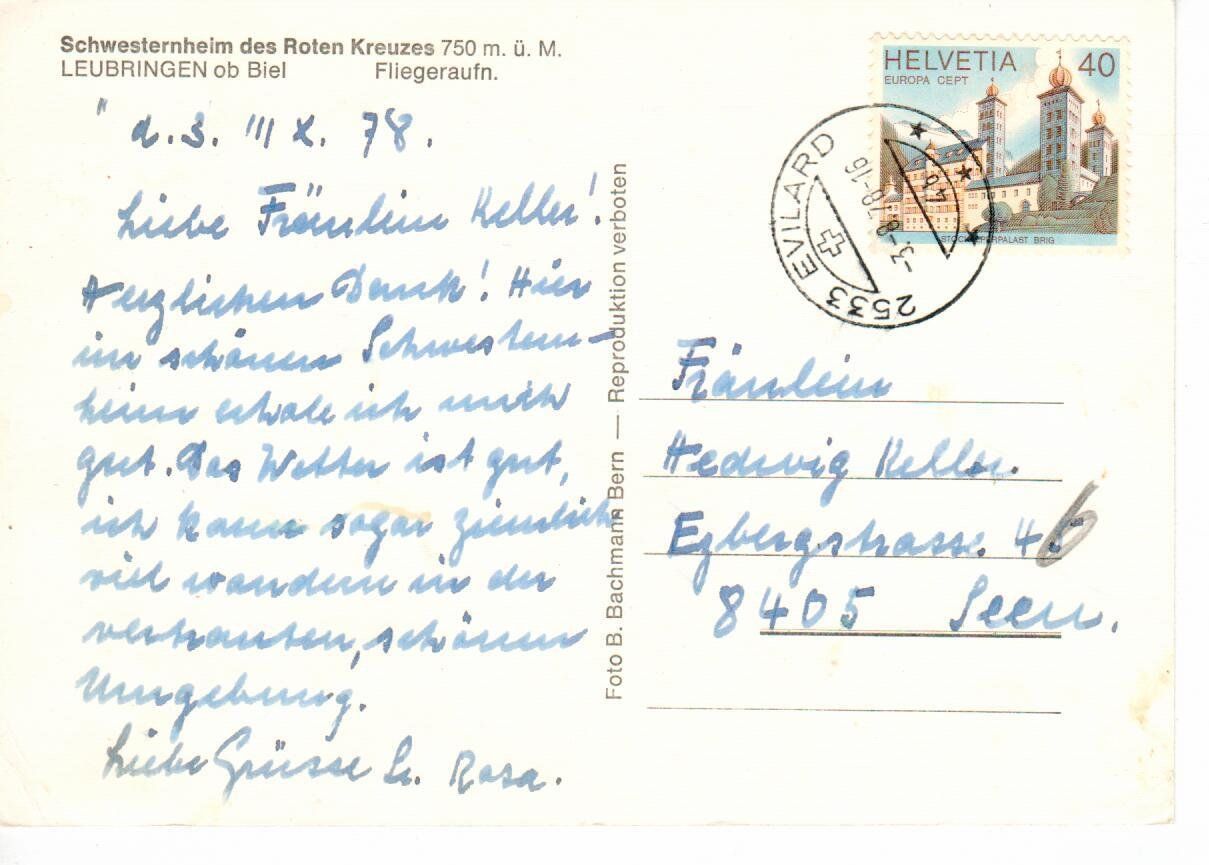 Schwesternheim des Roten Kreuzes 750 m. ü. M.
LEUBRINGEN ob Biel Fliegeraufn.
" d. 3. III X. 78.
Liebe Fräulein Keller!
Herzlichen Dank! Hier
im schönen Schwestern-
heim erhole ich mich
gut. Das Wetter ist gut,
ich kann sogar ziemlich
viel wandern in der
vertrauten, schönen
Umgebung.
Liebe Grüsse Sr. Rosa.
Foto B. Bachmann Bern — Reproduktion verboten
HELVETIA 40
EUROPA CEPT
STOCKALPERPALAST BRIG
2533 EVILARD
-3.-8.78-16
Fräulein
Hedwig Keller.
Egbergstrasse 46
8405 Seen.